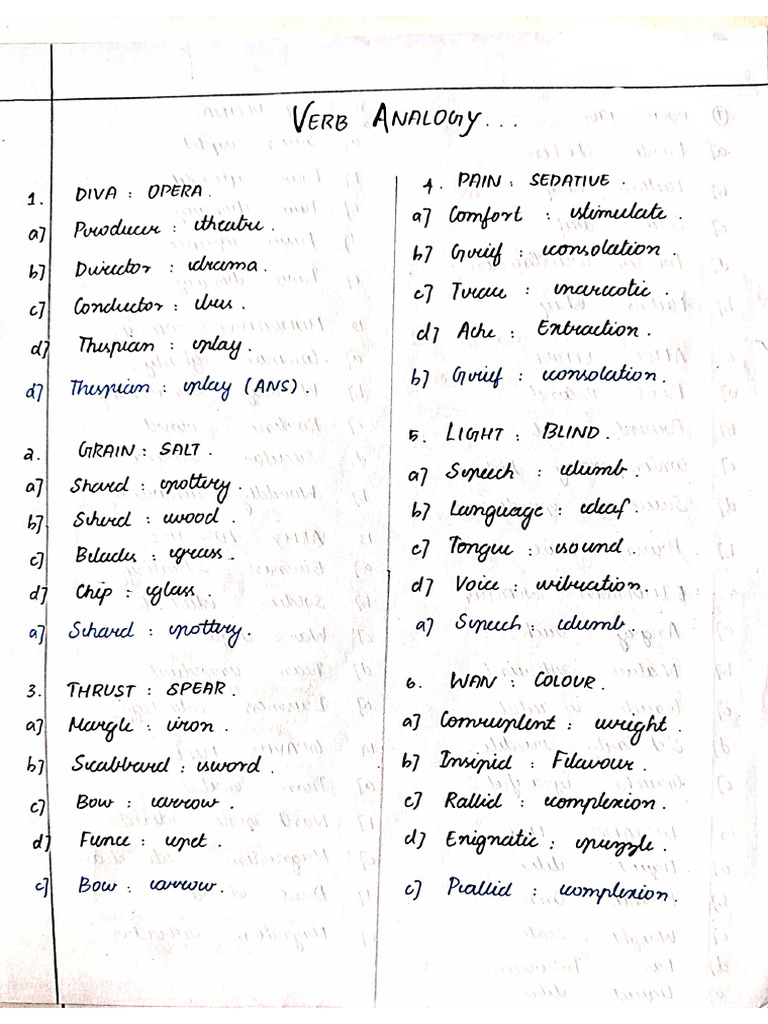 VERB ANALOGY...
1. DIVA : OPERA.
a] Producer : theatre.
b] Director : drama.
c] Conductor : bus.
d] Thespian : play.
d] Thespian : play (ANS).
2. GRAIN : SALT.
a] Shard : pottery.
b] Shred : wood.
c] Blades : grass.
d] Chip : glass.
a] Shard : pottery.
3. THRUST : SPEAR.
a] Mangle : iron.
b] Scabbard : sword.
c] Bow : arrow.
d] Fence : epet.
c] Bow : arrow.
4. PAIN : SEDATIVE.
a] Comfort : stimulate.
b] Grief : consolation.
c] Trance : narcotic.
d] Ache : Extraction.
b] Grief : consolation.
5. LIGHT : BLIND.
a] Speech : dumb.
b] Language : deaf.
c] Tongue : sound.
d] Voice : vibration.
a] Speech : dumb.
6. WAN : COLOUR.
a] Corruplent : wright.
b] Insipid : Flavour.
c] Rallid : complexion.
d] Enignatic : puzzle.
c] Pallid : complexion.